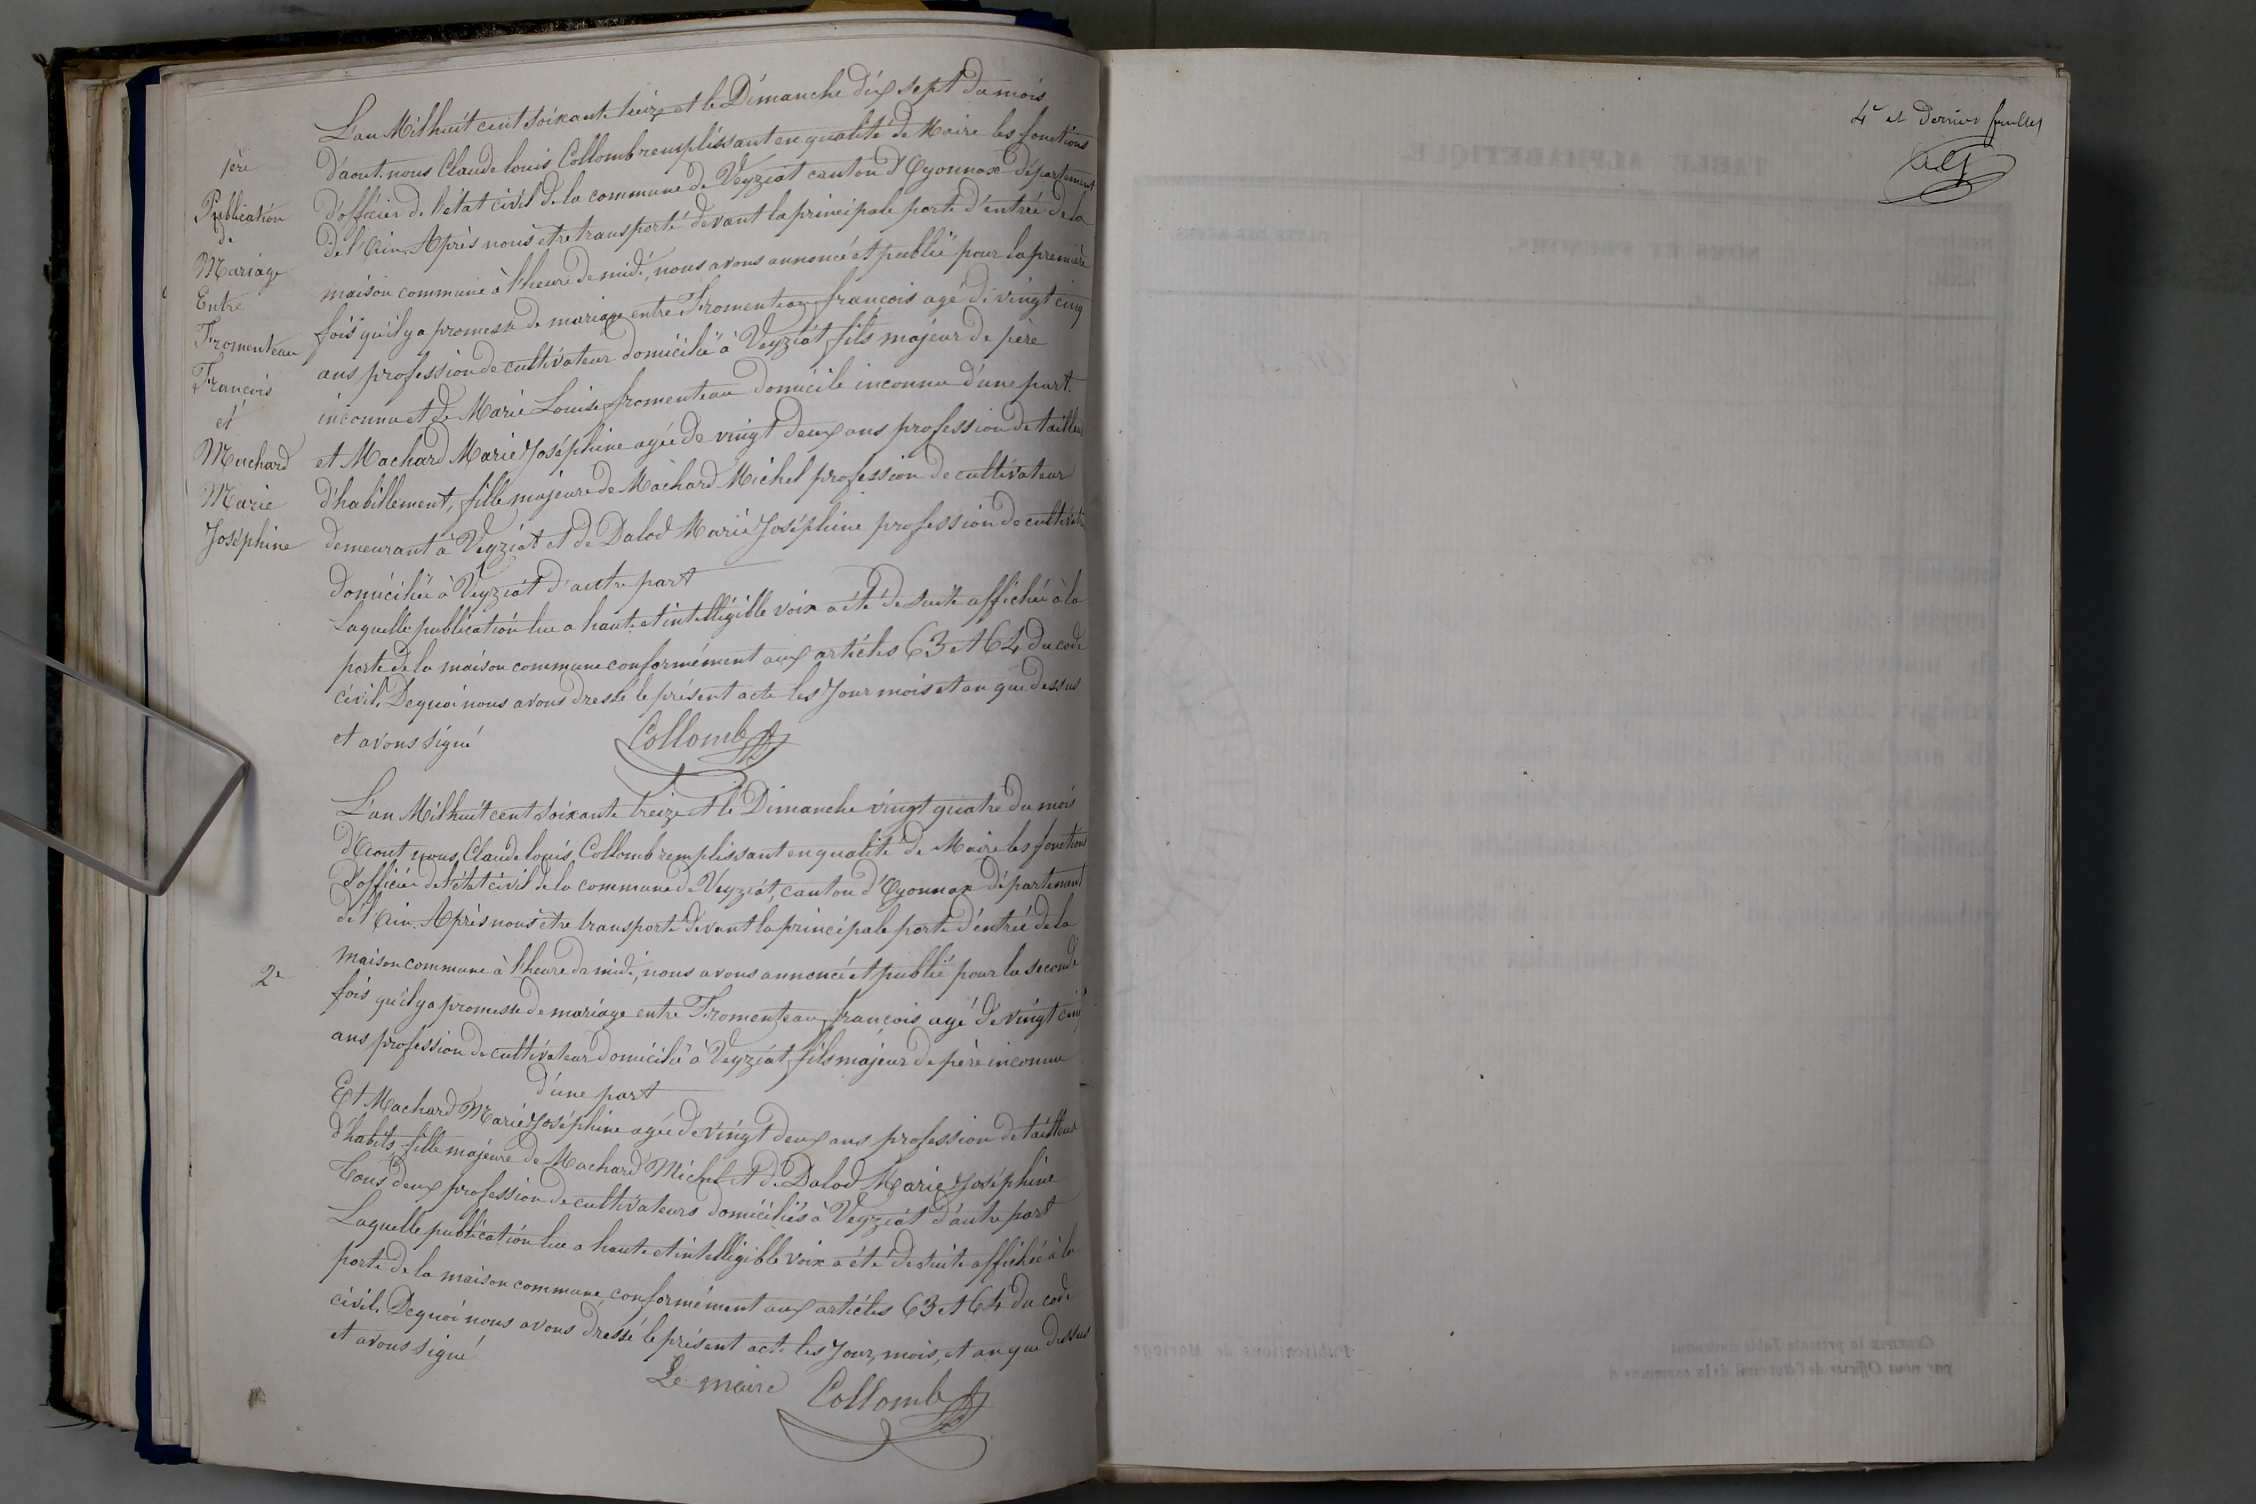 1ère
Publication
de
Mariage
Entre
Fromenteau
François
et
Machard
Marie
Joséphine
L'an Mil huit cent soixante treize et le Dimanche dix sept du mois
d'aout. nous Claude louis Collomb remplissant en qualité de Maire les fonctions
d'officier de l'état civil de la commune de Veyziat canton d'Oyonnax département
de l'Ain. Après nous être transporté devant la principale porte d'entrée de la
maison commune à l'heure de midi, nous avons annoncé et publié pour la première
fois qu'il y a promesse de mariage entre Fromenteau françois agé de vingt cinq
ans profession de cultivateur domicilié à Veyziat fils majeur de père
inconnu et de Marie Louise fromenteau domicile inconnu d'une part.
et Machard Marie Joséphine agée de vingt deux ans profession de tailleur
d'habillement, fille majeure de Machard Michel profession de cultivateur
demeurant à Veyziat et de Dalod Marie Joséphine profession de
domiciliée à Veyziat d'autre part
Laquelle publication lue a haute et intelligible voix a été de suite affichée à la
porte de la maison commune conformément aux articles 63 et 64 du code
civil. De quoi nous avons dressé le présent acte les Jour mois et an que dessus
et avons signé
Collomb
2e
L'an Mil huit cent soixante treize et le Dimanche vingt quatre du mois
d'Aout nous Claude louis Collomb remplissant en qualité de Maire les fonctions
d'officier de l'état civil de la commune de Veyziat, canton d'Oyonnax département
de l'Ain. Après nous être transporté devant la principale porte d'entrée de la
maison commune à l'heure de midi, nous avons annoncé et publié pour la seconde
fois qu'il y a promesse de mariage entre Fromenteau françois agé de vingt cinq
ans profession de cultivateur domicilié à Veyziat fils majeur de père inconnu
d'une part
Et Machard Marie Joséphine agée de vingt deux ans profession de tailleur
d'habits, fille majeure de Machard Michel et de Dalod Marie Joséphine
tous deux profession de cultivateurs domiciliés à Veyziat d'autre part
Laquelle publication lue a haute et intelligible voix a été de suite affichée à la
porte de la maison commune conformément aux articles 63 et 64 du code
civil. De quoi nous avons dressé le présent acte les Jour, mois, et an que dessus
et avons signé
Le maire Collomb
4e et Dernier feuillet